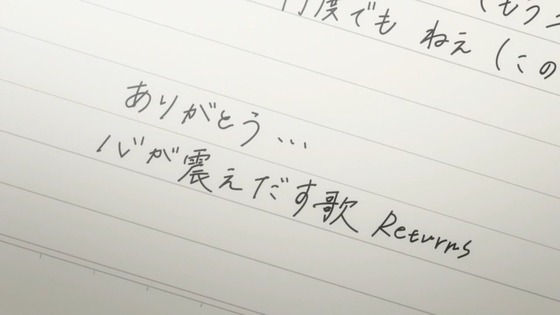 (もう
何度でも ねえ (この
ありがとう…
心が震えだす歌 Returns